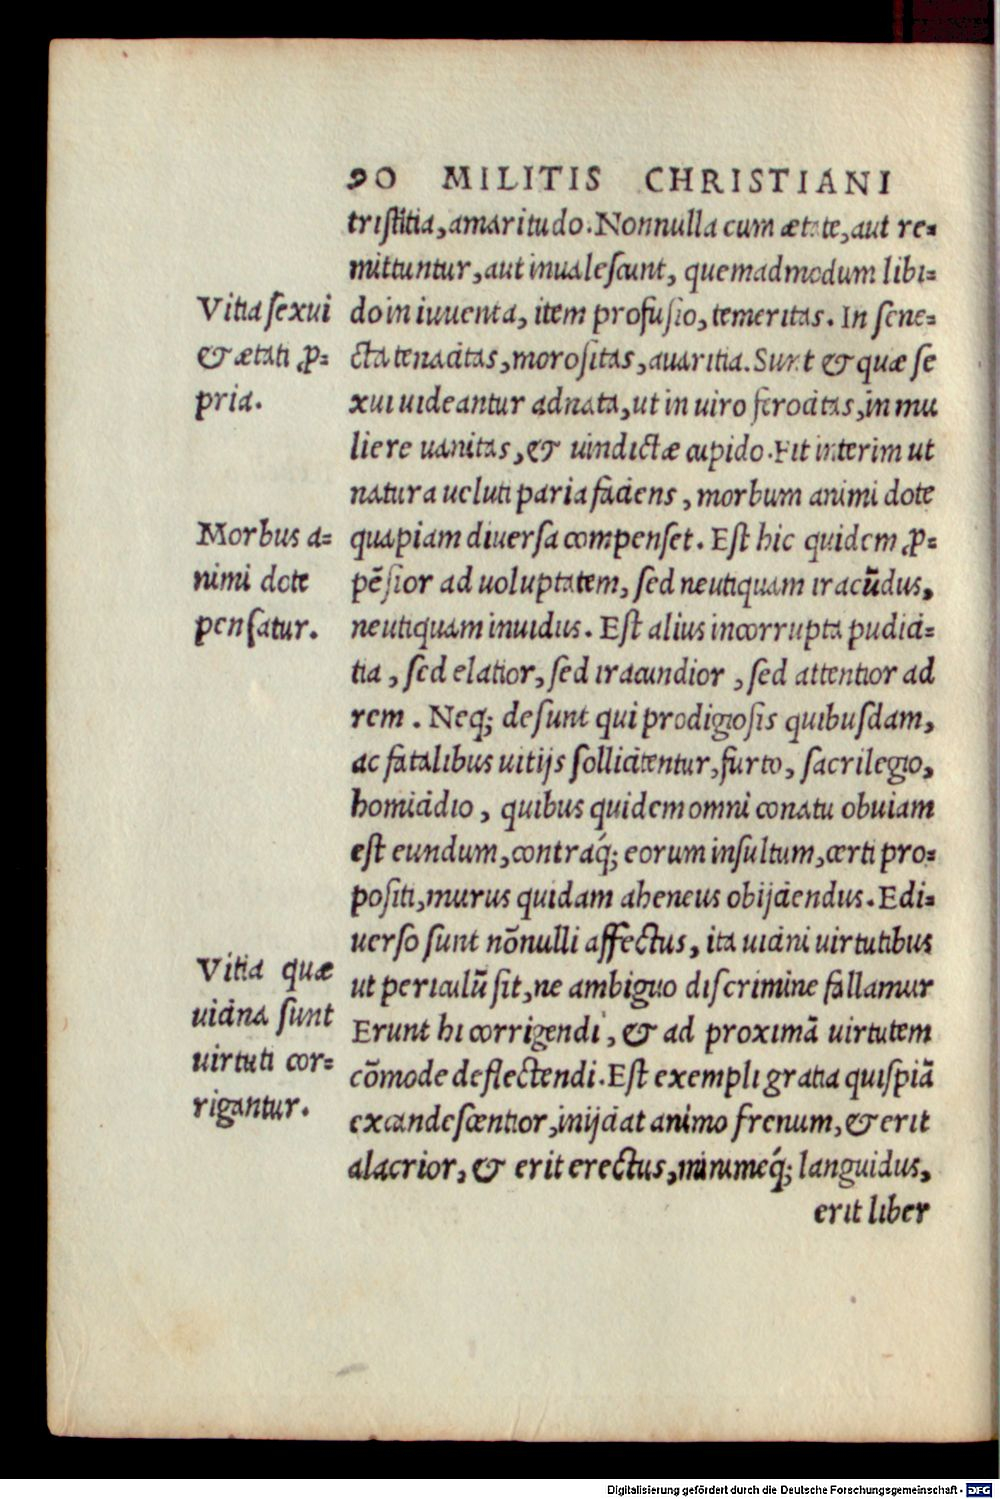 90 MILITIS CHRISTIANI
tristitia, amaritudo. Nonnulla cum ætate, aut re=
mittuntur, aut inualescunt, quemadmodum libi=
do in iuuenta, item profusio, temeritas. In sene=
cta tenacitas, morositas, auaritia. Sunt & quæ se
xui uideantur adnata, ut in uiro ferocitas, in mu
liere uanitas, & uindictæ cupido. Fit interim ut
natura ueluti paria faciens, morbum animi dote
quapiam diuersa compenset. Est hic quidem ꝓ=
pẽsior ad uoluptatem, sed neutiquam iracũdus,
neutiquam inuidus. Est alius incorrupta pudici=
tia, sed elatior, sed iracundior, sed attentior ad
rem. Neq; desunt qui prodigiosis quibusdam,
ac fatalibus uitijs sollicitentur, furto, sacrilegio,
homicidio, quibus quidem omni conatu obuiam
est eundum, contraq́; eorum insultum, certi pro=
positi, murus quidam aheneus obijciendus. E di=
uerso sunt nõnulli affectus, ita uicini uirtutibus
ut periculũ sit, ne ambiguo discrimine fallamur
Erunt hi corrigendi, & ad proximã uirtutem
cõmode deflectendi. Est exempli gratia quispiã
excandescentior, inijciat animo frenum, & erit
alacrior, & erit erectus, minimeq́; languidus,
erit liber
Vitia sexui
& ætati ꝓ=
pria.
Morbus a=
nimi dote
pensatur.
Vitia quæ
uicina sunt
uirtuti cor=
rigantur.
Digitalisierung gefördert durch die Deutsche Forschungsgemeinschaft - DFG